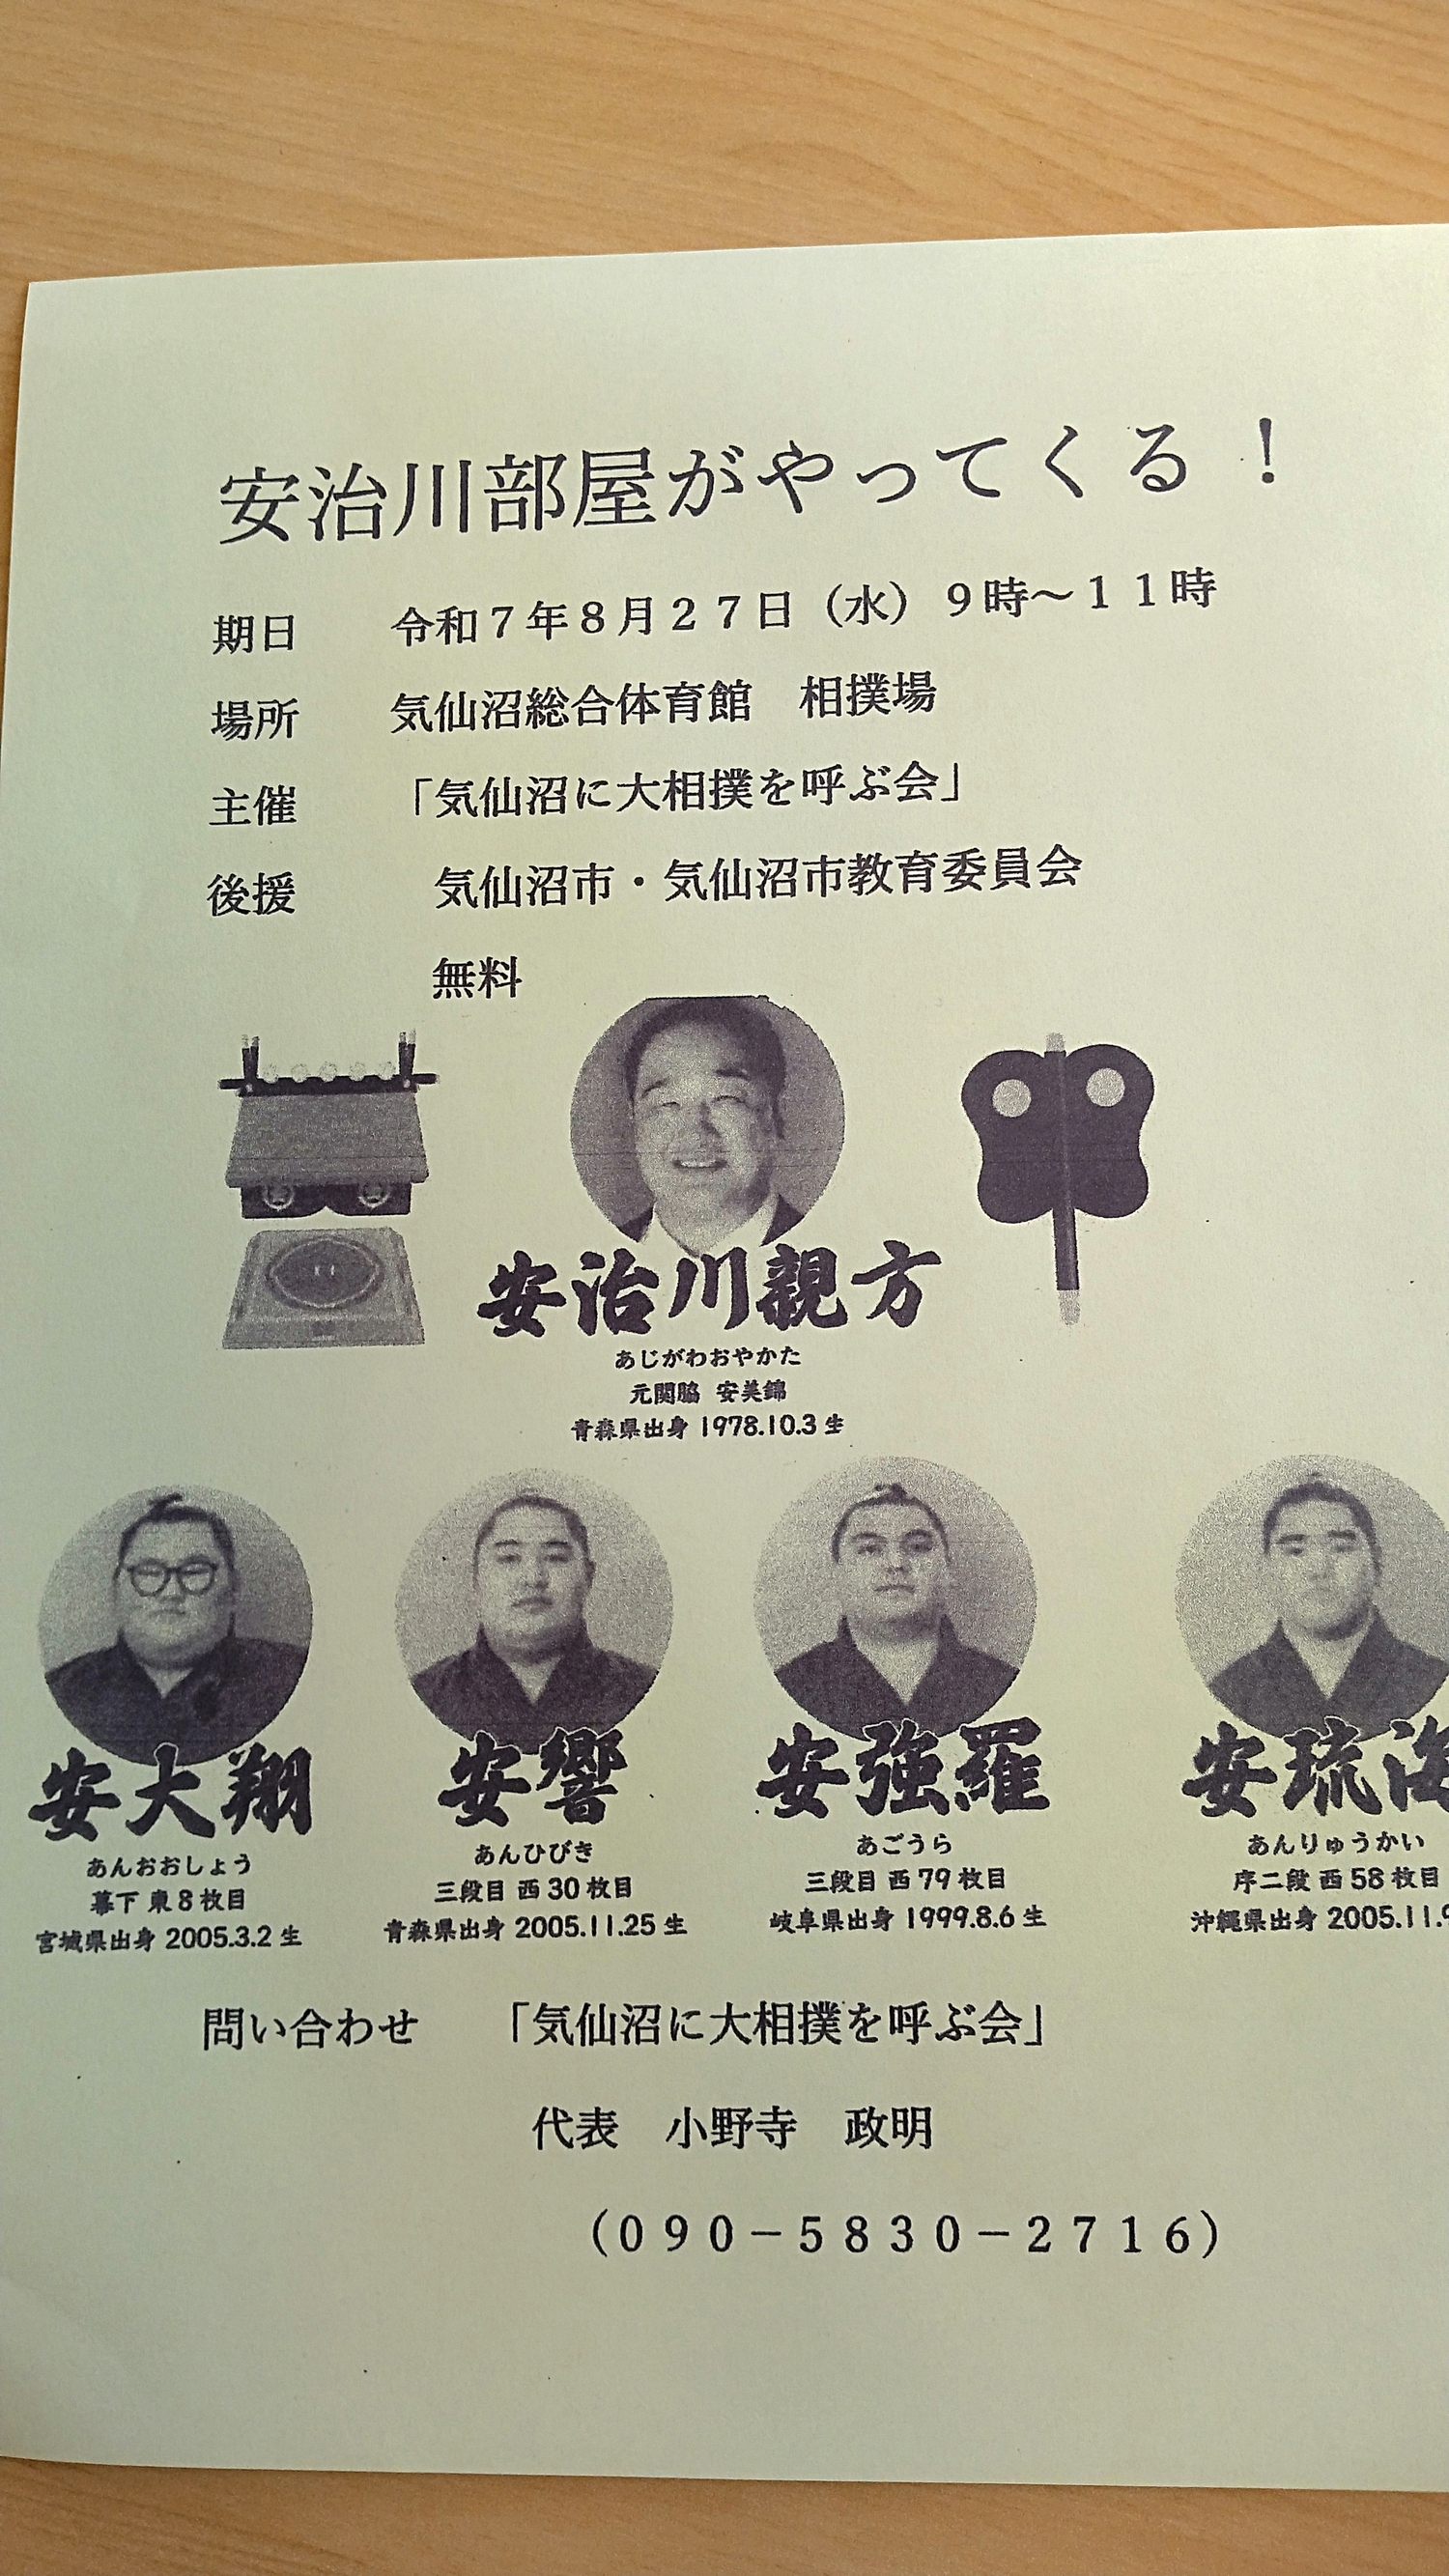 安治川部屋がやってくる！
期日　令和７年８月２７日（水）９時～１１時
場所　気仙沼総合体育館　相撲場
主催　「気仙沼に大相撲を呼ぶ会」
後援　気仙沼市・気仙沼市教育委員会
無料
安治川親方
あじがわおやかた
元関脇 安美錦
青森県出身 1978.10.3 生
安大翔
あんおおしょう
幕下 東 8 枚目
宮城県出身 2005.3.2 生
安響
あんひびき
三段目 西 30 枚目
青森県出身 2005.11.25 生
安強羅
あごうら
三段目 西 79 枚目
岐阜県出身 1999.8.6 生
安琉海
あんりゅうかい
序二段 西 58 枚目
沖縄県出身 2005.11.9
問い合わせ　「気仙沼に大相撲を呼ぶ会」
代表　小野寺　政明
（０９０－５８３０－２７１６）